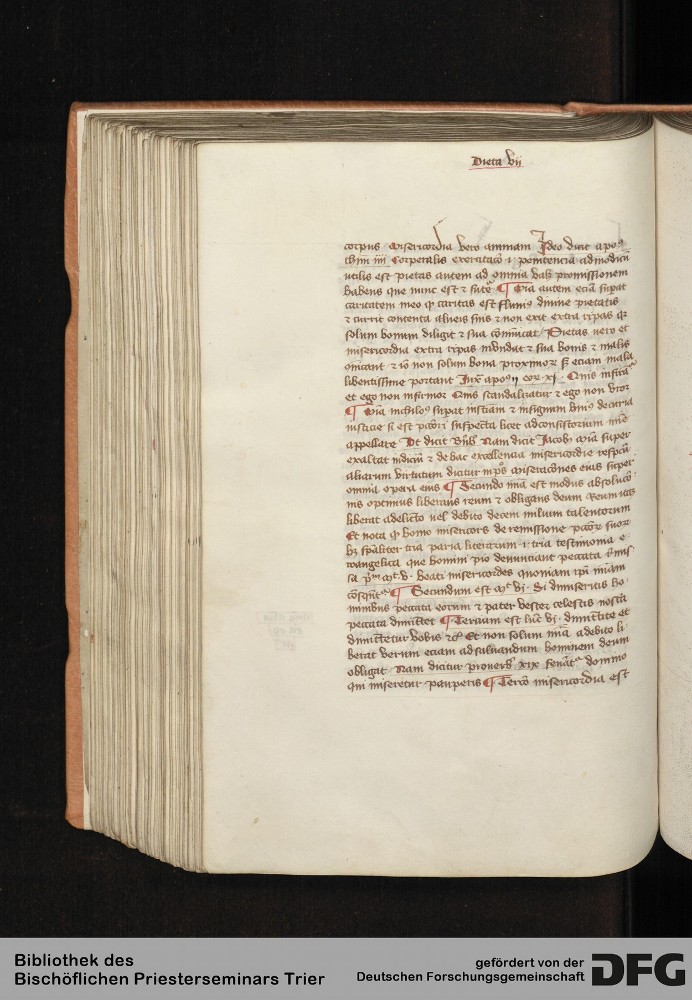 Dieta vii
corpus misericordia vero animam Ideo dicit apo9
thim iiii Corporalis exercitacō i penitencia ad modicū
utilis est pietas autem ad omnia valꝫ promissionem
habens que nunc est ⁊ futͤ ¶ Mīa autem eciā supat
caritatem meo qͥ caritas est fluuiꝰ diuine pietatis
⁊ currit contenta alueis suis ⁊ non exit extra ripas qꝫ
solum bonum diligit ⁊ sua cōmūicat Pietas uero et
misericordia extra ripas inūdat ⁊ sua bonis ⁊ malis
cōīcant ⁊ iō non solum bona proximoꝝ sꝫ eciam mala
libentissime portant Iuxͣ apoꝰ ii cor xi Quis infirͣ
et ego non infirmor Quis scandalizatur ⁊ ego non vror
¶ Mīa supat iusticiam ⁊
iusticie si est pctōri suspecta licet ad consistorium mīe
appellare Ut dicit Bern̄ Nam dicit Jacobꝰ mīa super
exaltat iudiciū ⁊ de hac excellencia misericordie respcū
aliarum virtutum dicitur in pͣs miseracōnes eius super
omnia opera eius ¶ Secundo mīa est modus absolucō
nis optimus liberans reum ⁊ obligans deum Reum
liberat a delicto uel debito decem milium talentorum
Et nota qͥ homo misericors de remissione pctōꝝ suoꝝ
hꝫ spāliter tria paria literarum i tria testimonia e
wangelica que homini pio denunciant peccata
sa pͥm mͭ v Beati misericordes quoniam ipī mīam
cōsequētͬ ¶ Secundum est mͭ vi Si dimiseritis ho
minibus peccata eorum ⁊ pater vester celestis
peccata dimittet ¶ Tercium est luc̄ vi dimittite et
dimittetur vobis ⁊c̄ Et non solum mīa a debito li
berat verum eciam ad saluandum hominem deum
obligat Nam dicitur prouerbꝰ xix fenātͬ domino
qui miseretur pauperis ¶ Tercō misericordia est
Bibliothek des
Bischöflichen Priesterseminars Trier
gefördert von der
Deutschen Forschungsgemeinschaft
DFG